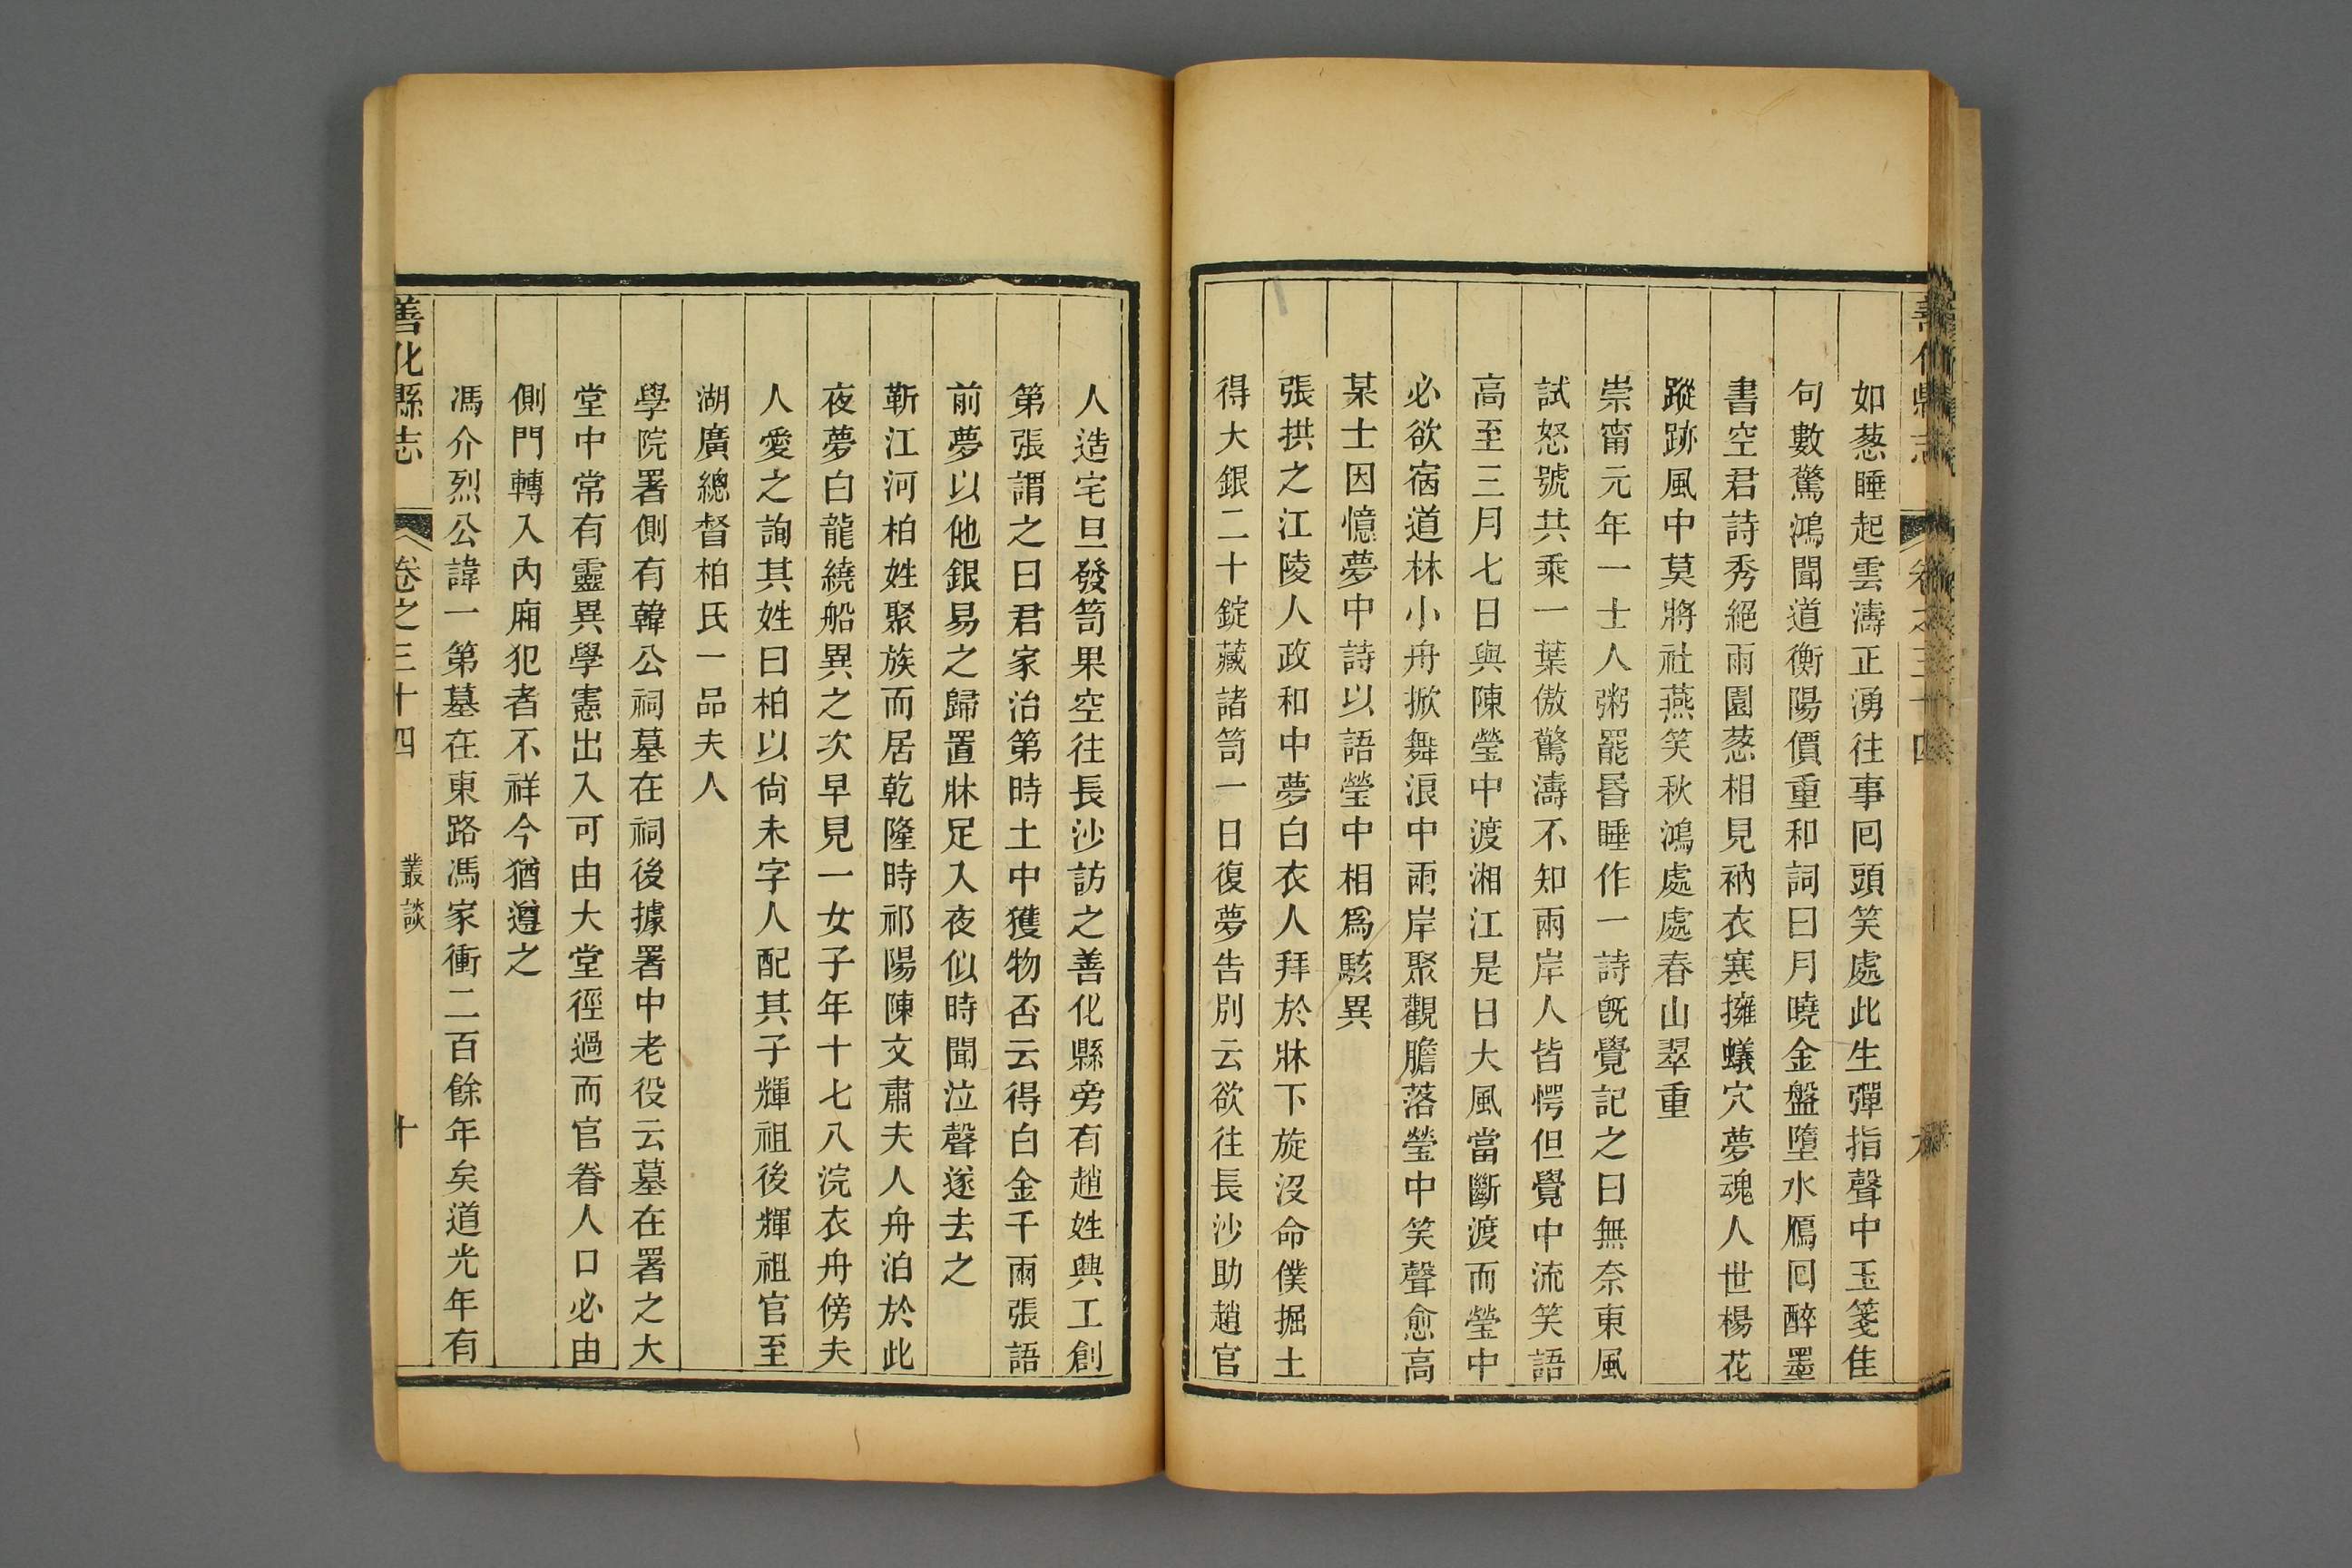 如葱睡起雲濤正湧往事囘頭笑處此生彈指聲中玉箋佳
句數驚鴻聞道衡陽價重和詞曰月曉金盤墮水鴈囘醉墨
書空君詩秀絕雨園葱相見衲衣寒擁蟻穴夢魂人世楊花
蹤跡風中莫將社燕笑秋鴻處處春山翠重
崇甯元年一士人粥罷昬睡作一詩旣覺記之曰無奈東風
試怒號共乘一葉傲驚濤不知兩岸人皆愕但覺中流笑語
高至三月七日與陳瑩中渡湘江是日大風當斷渡而瑩中
必欲宿道林小舟掀舞浪中兩岸聚觀膽落瑩中笑聲愈高
某士因憶夢中詩以語瑩中相爲駭異
張拱之江陵人政和中夢白衣人拜於牀下旋沒命僕掘土
得大銀二十錠藏諸笥一日復夢告別云欲往長沙助趙官
人造宅旦發笥果空往長沙訪之善化縣旁有趙姓興工創
第張謂之曰君家治第時土中獲物否云得白金千兩張語
前夢以他銀易之歸置牀足入夜似時聞泣聲遂去之
靳江河柏姓聚族而居乾隆時祁陽陳文肅夫人舟泊於此
夜夢白龍繞船異之次早見一女子年十七八浣衣舟傍夫
人愛之詢其姓曰柏以尙未字人配其子輝祖後輝祖官至
湖廣總督柏氏一品夫人
學院署側有韓公祠墓在祠後據署中老役云墓在署之大
堂中常有靈異學憲出入可由大堂徑過而官眷人口必由
側門轉入內廂犯者不祥今猶遵之
馮介烈公諱一第墓在東路馮家衝二百餘年矣道光年有
善化縣志 卷之三十四 叢談 十